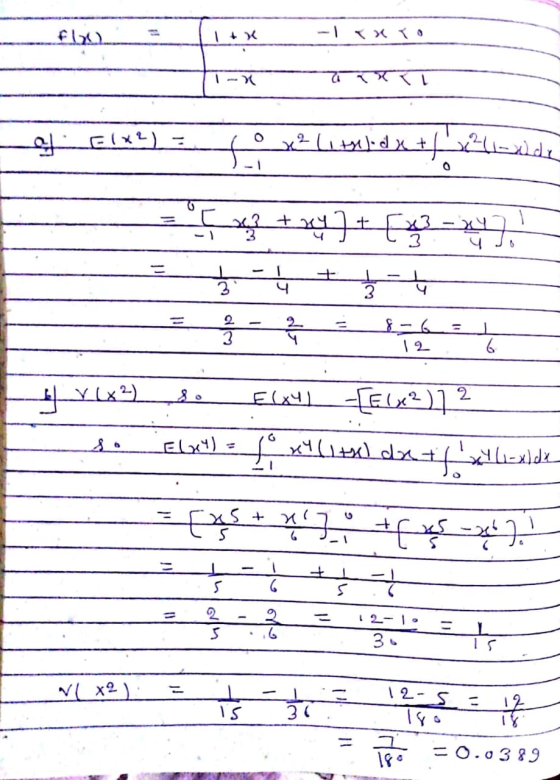 f(x) = { 1+x -1 < x < 0
1-x 0 < x < 1
a] E(x²) = ∫₋₁⁰ x²(1+x)·dx + ∫₀¹ x²(1-x)dx
= ⁰₋₁[x3/3 + x4/4] + [x3/3 - x4/4]₀¹
= 1/3 - 1/4 + 1/3 - 1/4
= 2/3 - 2/4 = 8-6/12 = 1/6
b] V(x²) so E(x4) - [E(x²)]2
so E(x⁴) = ∫₋₁⁰ x4(1+x) dx + ∫₀¹ x4(1-x)dx
= [x5/5 + x6/6]₋₁⁰ + [x5/5 - x6/6]₀¹
= 1/5 - 1/6 + 1/5 - 1/6
= 2/5 - 2/6 = 12-10/30 = 1/15
V(x²) = 1/15 - 1/36 = 12-5/180 = 12/18
= 7/180 = 0.0389